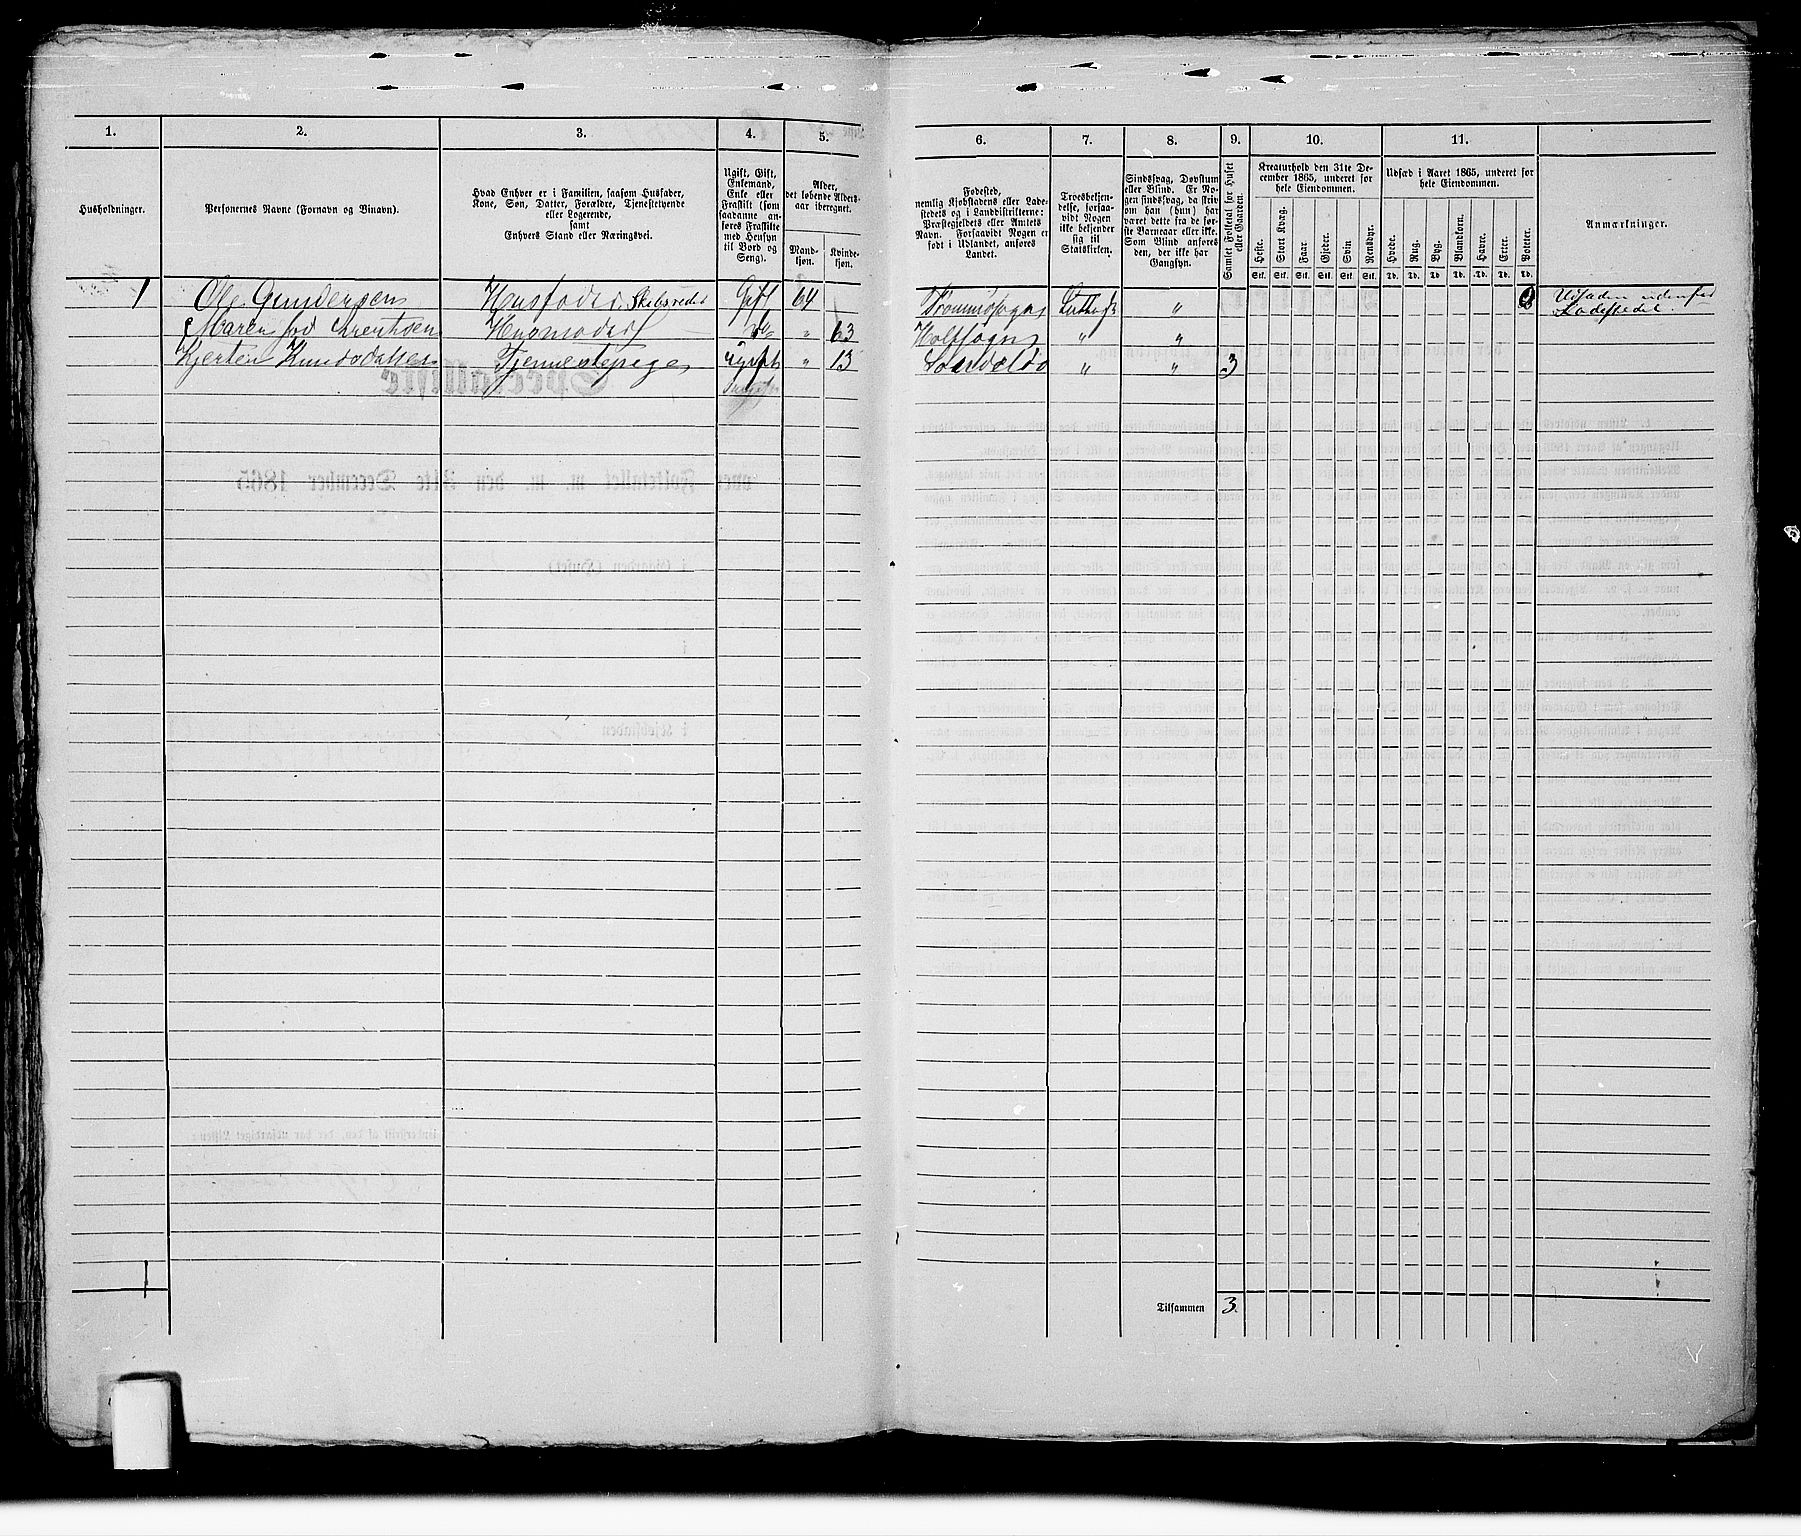 1.
2.
3.
4.
5.
Husholdninger.
Personernes Navne (Fornavn og Binavn).
Hvad Enhver er i Familien, saasom Husfader,
Kone, Søn, Datter, Forældre, Tjenestetyende
eller Logerende,
samt
Enhvers Stand eller Næringsvei.
Ugift, Gift,
Enkemand,
Enke eller
Fraskilt (som
saadanne an-
føres Fraskilte
med Hensyn
til Bord og
Seng).
Alder,
det løbende Alders-
aar iberegnet.
Mand-
kjøn.
Kvinde-
kjøn.
1 Ole Gundersen Huusfader Skibsreder Gift 64
Maren fød Huusmoder do " 63
Kjersten Knudsdatter Tjenestepige ugift " 13
6.
7.
8.
9.
10.
11.
Fødested,
nemlig Kjøbstadens eller Lade-
stedets og i Landdistrikterne:
Præstegjeldets eller Amtets
Navn. Forsaavidt Nogen er
født i Udlandet, anføres
Landet.
Troesbekjen-
delse, forsaa-
vidt Nogen
ikke bekjender
sig til
Statskirken.
Sindssvag, Døvstum
eller Blind. Er No-
gen sindssvag, da skriv
om han (hun) har
været dette fra de før-
ste Barneaar eller ikke.
Som Blind anføres
den, der ikke har
Gangsyn.
Samlet Folketal for Huset
eller Gaarden.
Kreaturhold den 31te De-
cember 1865, underet for
hele Eiendommen.
Heste.
Stort Kvæg.
Faar.
Gjeder.
Svin
Rensdyr.
Stk. Stk. Stk. Stk. Stk. Stk.
Udsæd i Aaret 1865, underet for
hele Eiendommen.
Hvede.
Rug.
Byg.
Blandkorn.
Havre.
Erter.
Poteter.
Td. Td. Td. Td. Td. Td. Td.
Anmærkninger.
Tromøsogn Luthersk " Udsæden udenfor
Ladestedet.
Holtsogn " "
" " 3
Tilsammen 3.